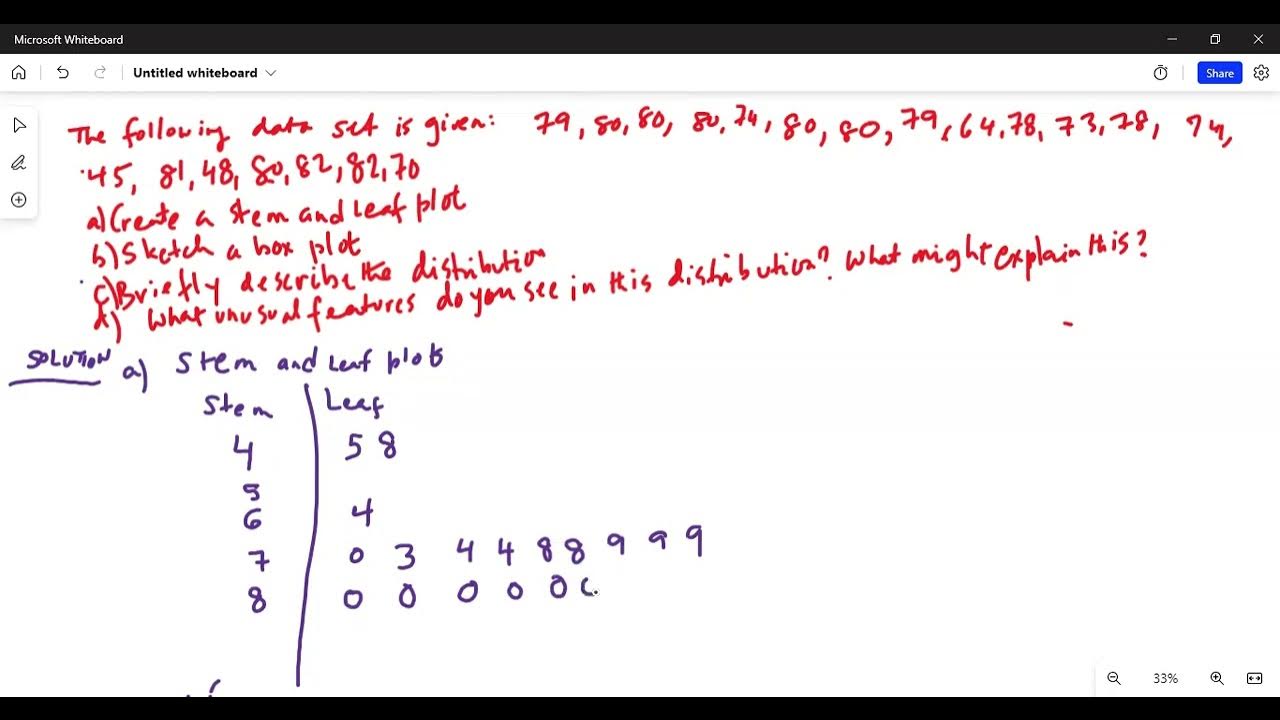 Microsoft Whiteboard
Untitled whiteboard
Share
The following data set is given: 79, 80, 80, 80, 74, 80, 80, 79, 64, 78, 73, 78, 74,
45, 81, 48, 80, 82, 82, 70
a) Create a stem and leaf plot
b) Sketch a box plot
c) Briefly describe the distribution
d) What unusual features do you see in this distribution? What might explain this?
SOLUTION a) Stem and Leaf plots
Stem Leaf
4 5 8
5
6 4
7 0 3 4 4 8 8 9 9 9
8 0 0 0 0 0
33%